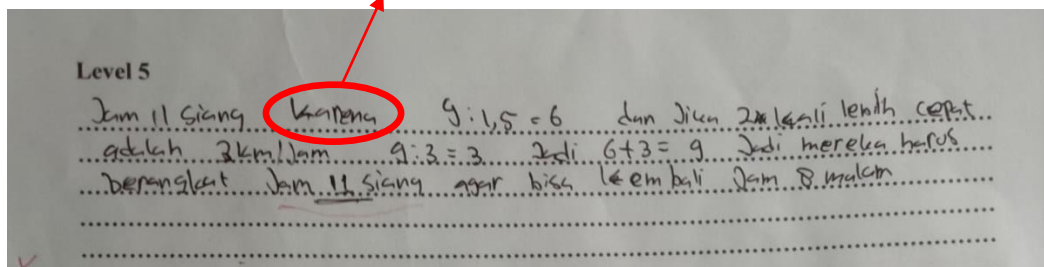 Level 5
Jam 11 siang karena 9 : 1,5 = 6 dan Jika 2x kali lebih cepat
adalah 3km/Jam 9 : 3 = 3 Jadi 6+3 = 9 Jadi mereka harus
berangkat Jam 11 siang agar bisa kembali Jam 8 malam